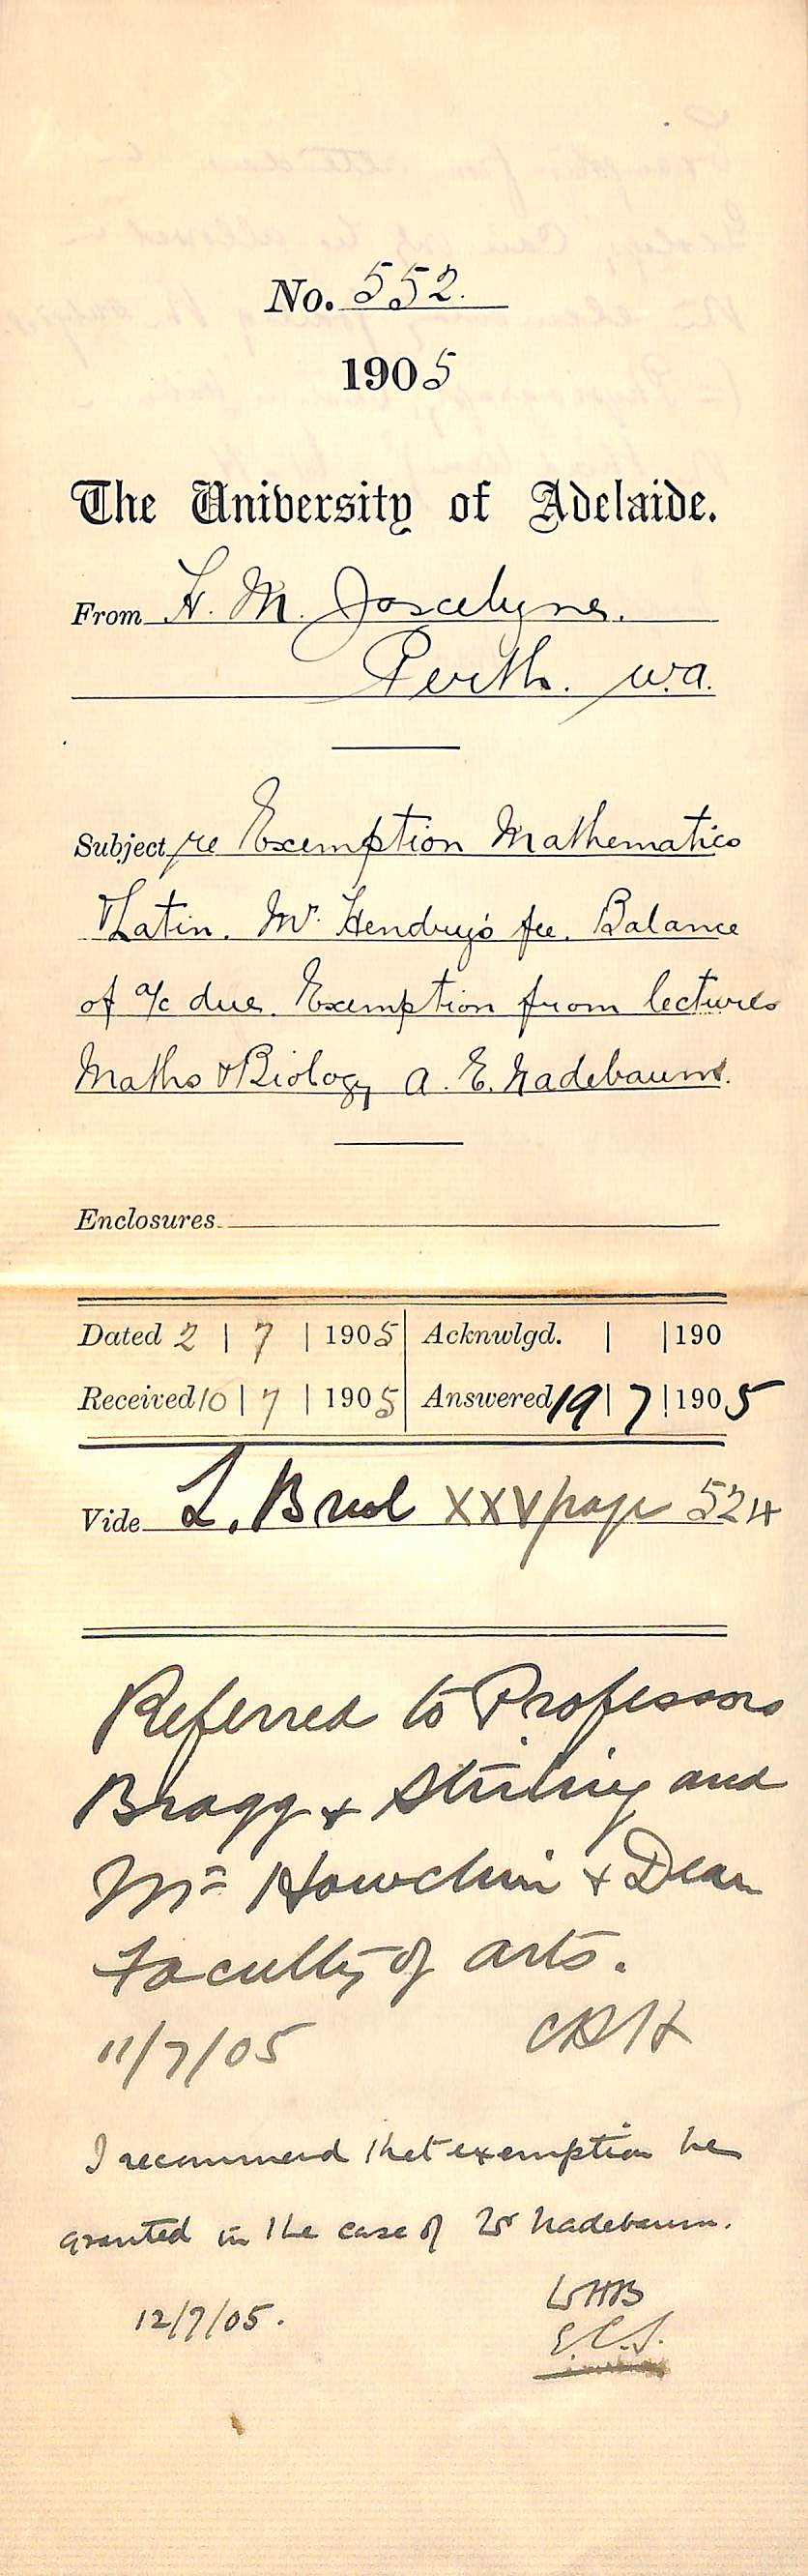 No. 552.
1905
The University of Adelaide.
From H. M. Joscelyne.
Perth. W.A.
Subject re Exemption Mathematics
& Latin. Mr. Hendry's fee. Balance
of a/c due. Exemption from lectures
Maths & Biology A. E. Nadebaum.
Enclosures
Dated 2 | 7 | 1905 Acknwlgd. | | 190
Received 10 | 7 | 1905 Answered 19 | 7 | 1905
Vide L. Book XXV page 524
Referred to Professors
Bragg & Stirling and
Mr Howchin & Dean
Faculty of Arts.
11/7/05 CRH
I recommend that exemption be
granted in the case of Nadebaum.
12/7/05. WHB
E.C.S.